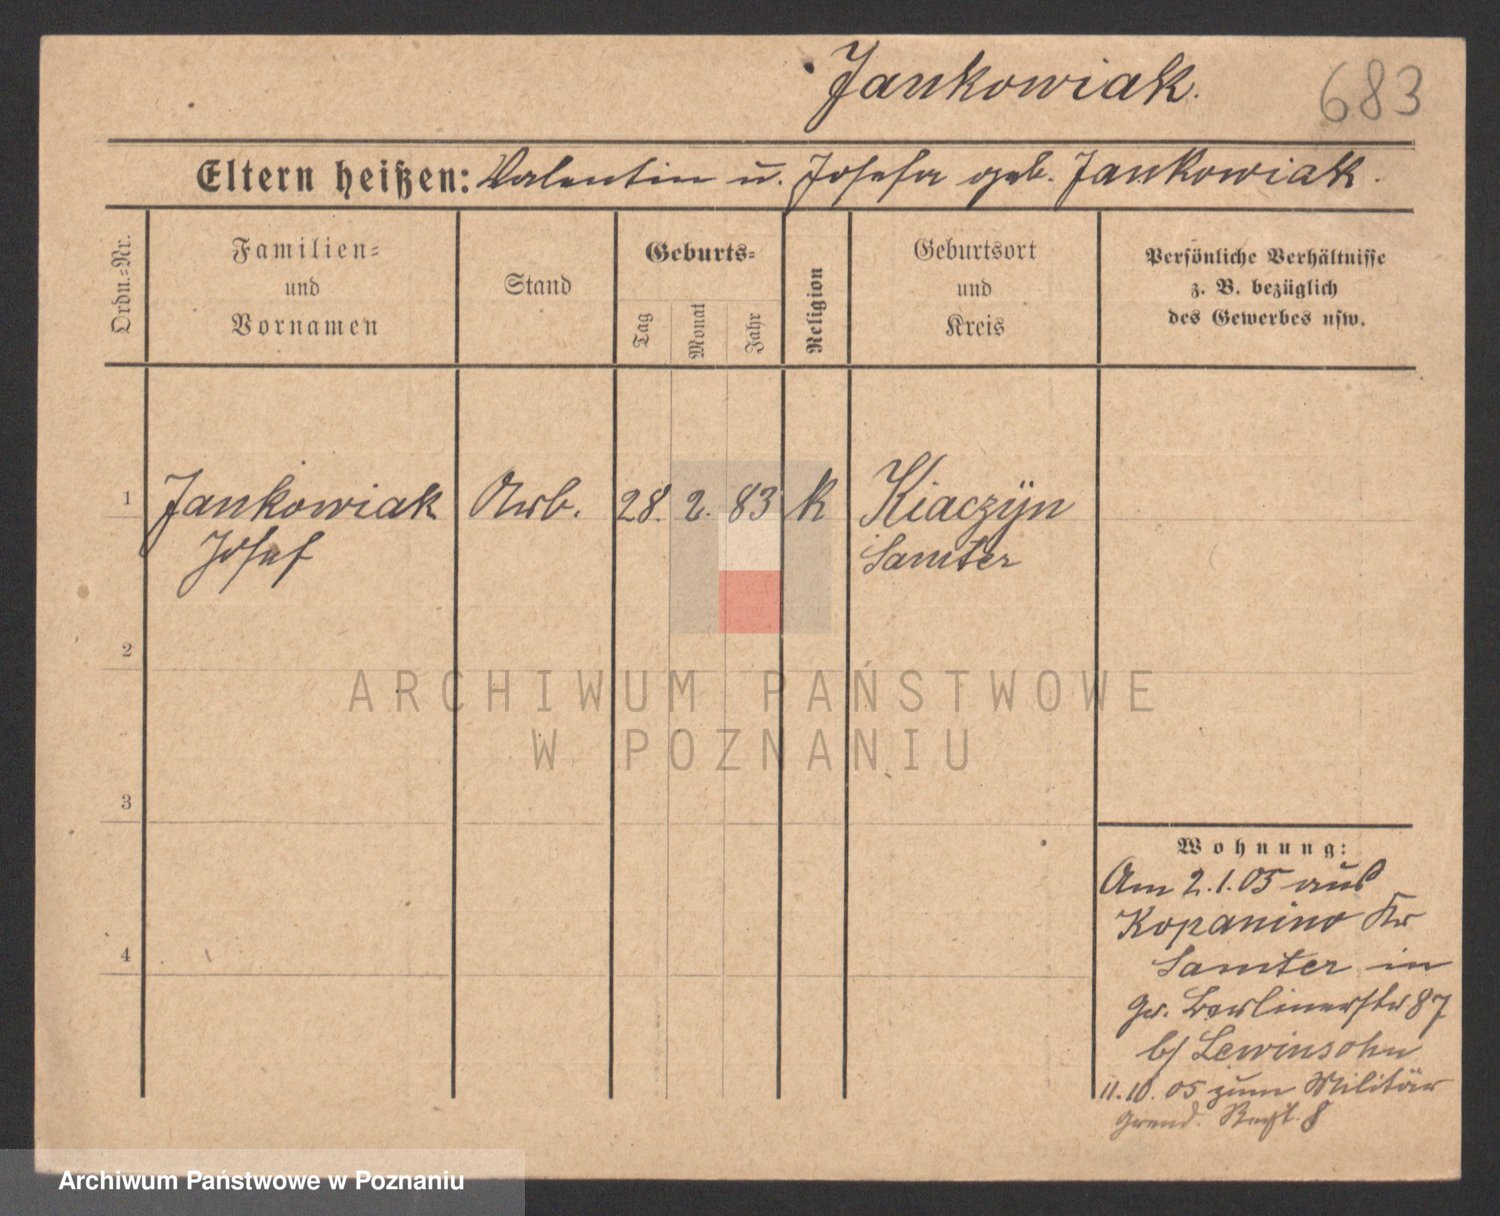 Jankowiak.
683
Eltern heißen: Valentin u. Josefa geb. Jankowiak.
Ordn.=Nr.
Familien=
und
Vornamen
Stand
Geburts=
Tag
Monat
Jahr
Religion
Geburtsort
und
Kreis
Persönliche Verhältnisse
z. B. bezüglich
des Gewerbes usw.
1 Jankowiak Arb. 28. 2. 83 k Kiaczÿn
Josef Samter
2
ARCHIWUM PAŃSTWOWE
W POZNANIU
3
Wohnung:
Am 2.1.05 aus
Kopanino Kr
Samter in
gr. Berlinerstr 87
b/ Lewinsohn
4
11.10.05 zum Militär
Grend. Regt. 8
Archiwum Państwowe w Poznaniu